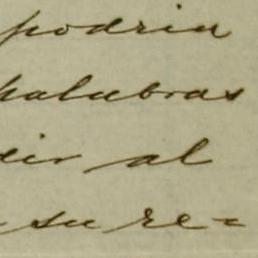 podria
palabras
cir al
su re=